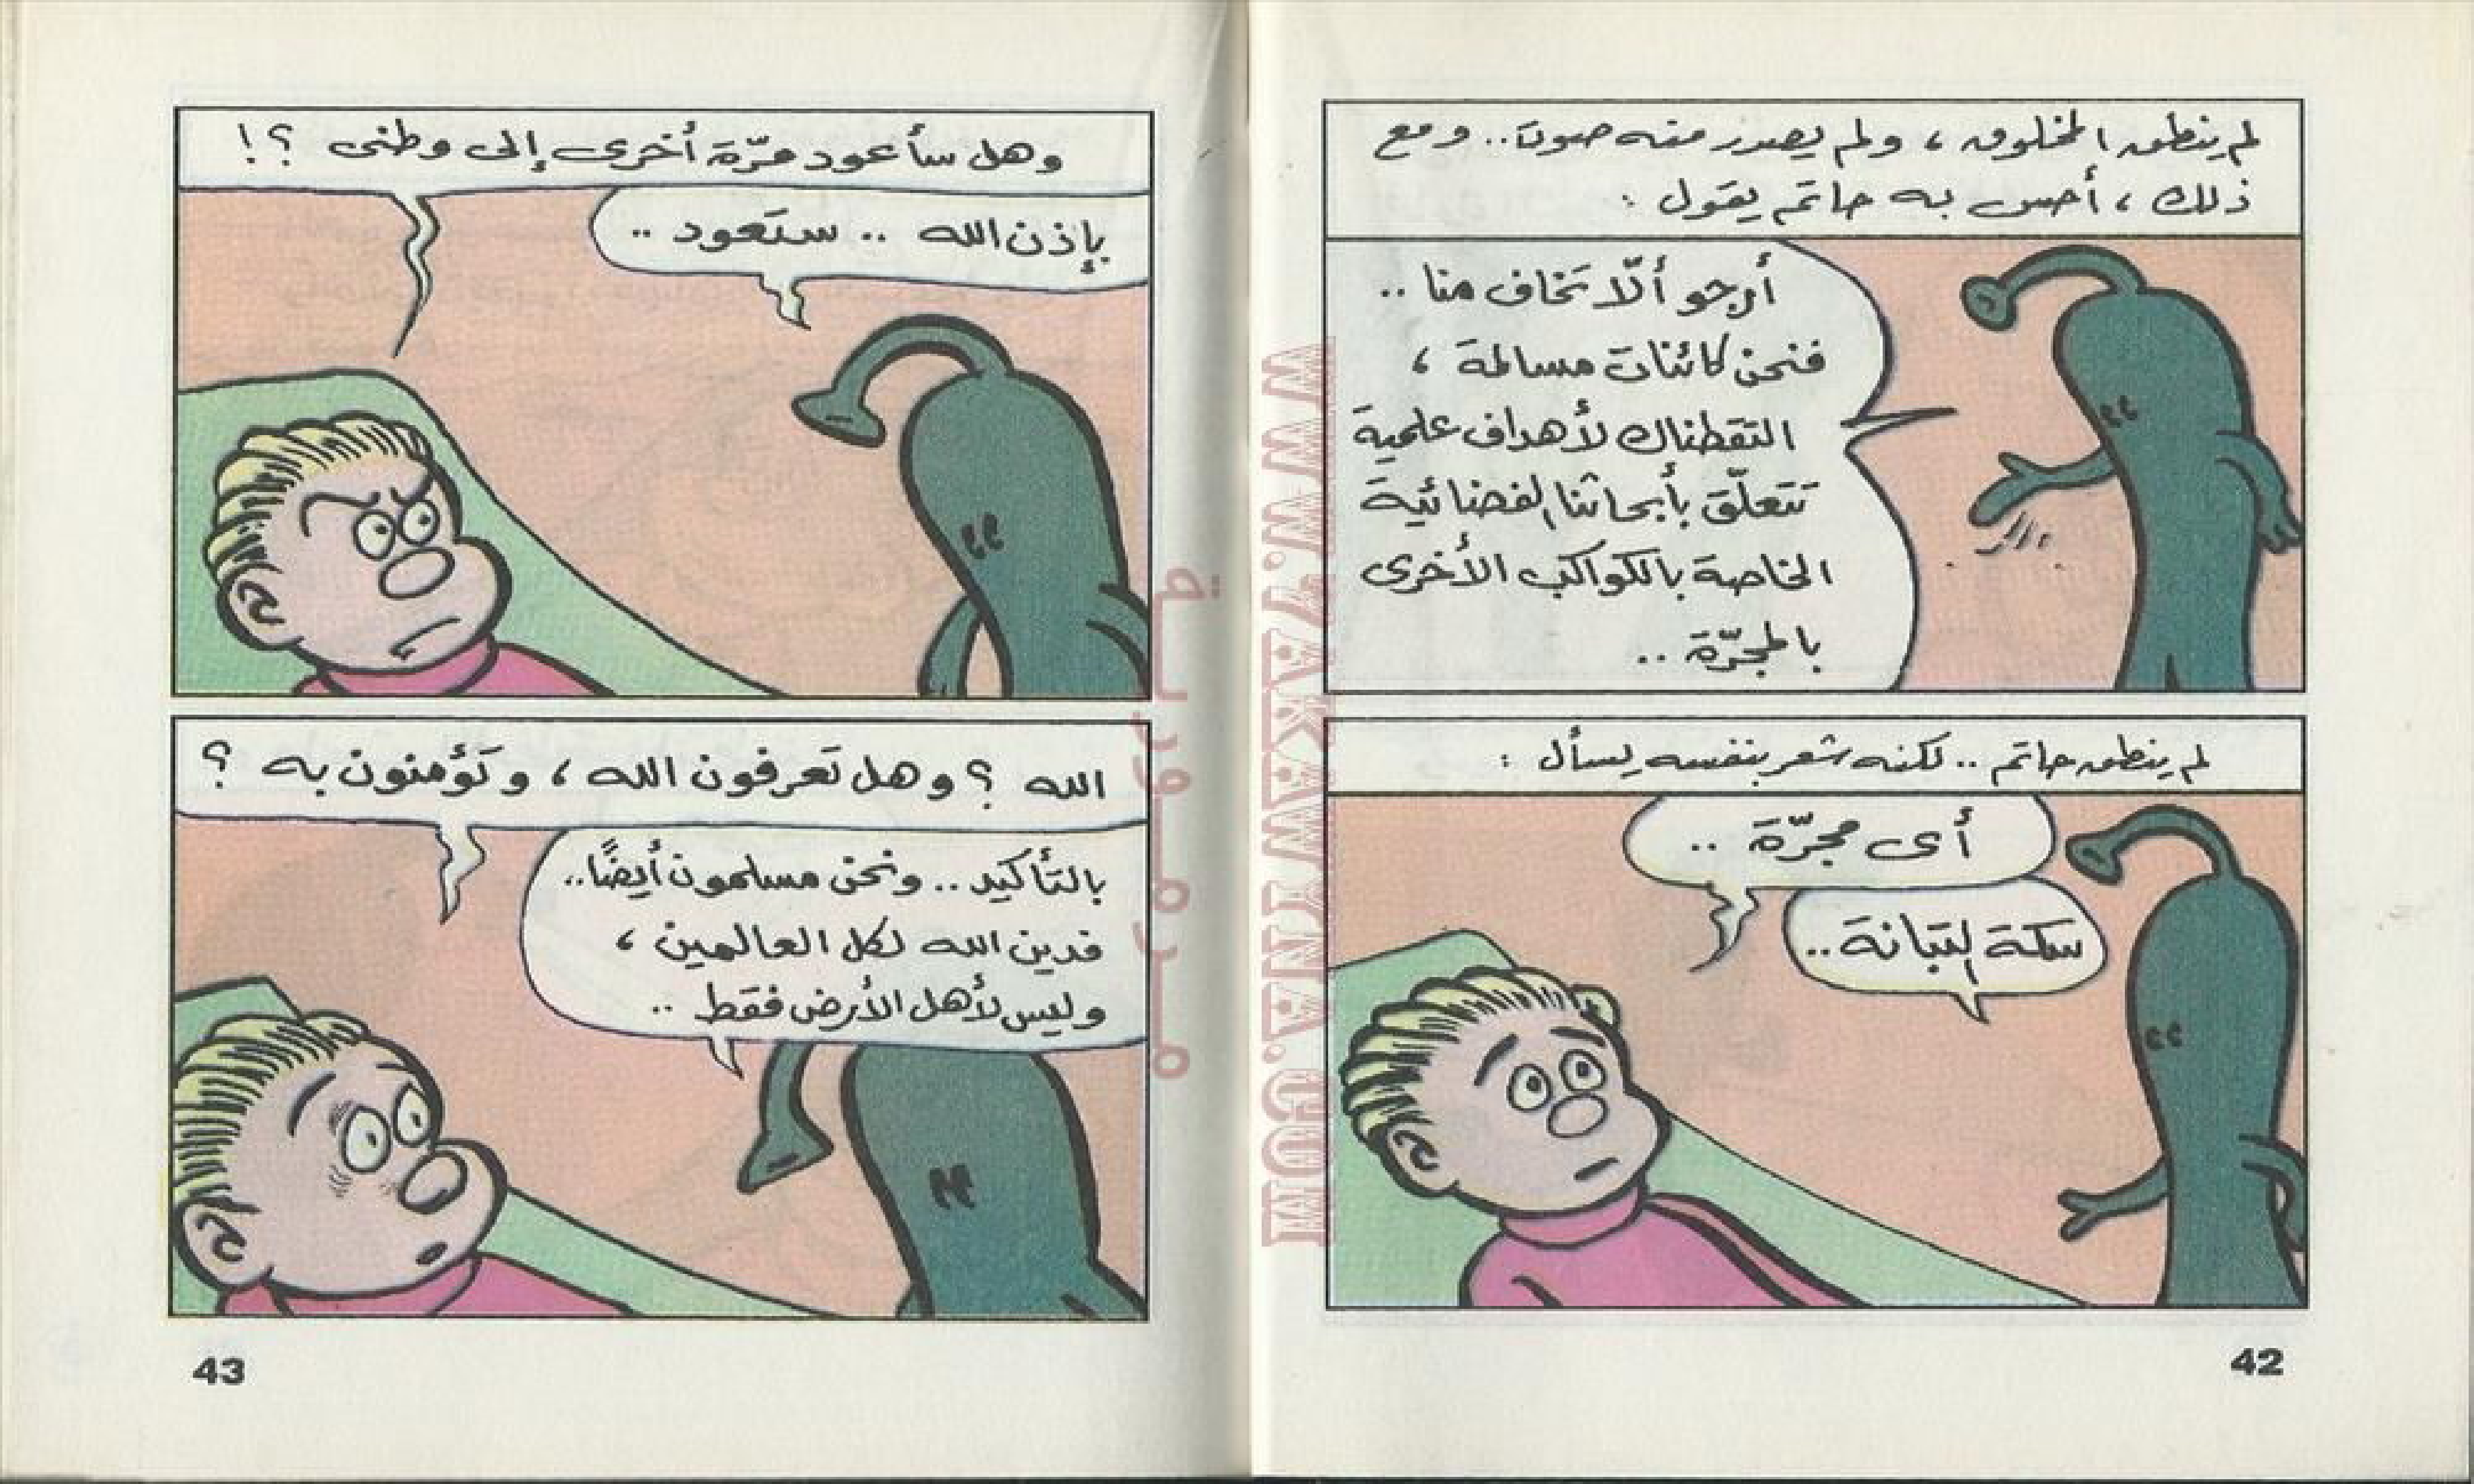 لم ينطق المخلوق ، ولم يصدر منه صوت .. ومع
ذلك ، أحس به حاتم يقول :
أرجو ألّا تخاف منا ..
فنحن كائنات مسالمة ،
التقطناك لأهداف علمية
تتعلّق بأبحاثنا الفضائية
الخاصة بالكواكب الأخرى
بالمجرّة ..
لم ينطق حاتم .. لكنه شعر بنفسه يسأل :
أى مجرّة ..
سكة التبانة ..
42
وهل سأعود مرّة أخرى إلى وطنى ؟!
بإذن الله .. ستعود ..
الله ؟ وهل تعرفون الله ، وتؤمنون به ؟
بالتأكيد .. ونحن مسلمون أيضًا ..
فدين الله لكل العالمين ،
وليس لأهل الأرض فقط ..
43
WWW.ARAKAWAYNA.COM